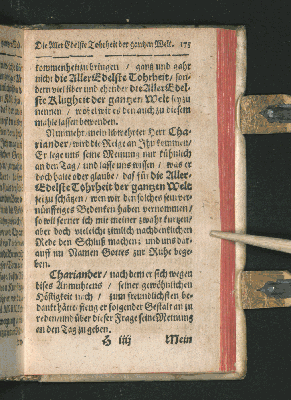 Die Aller Edelste Tohrheit der gantzen Welt. 175
kommen heraus bringen / gantz und gahr
nicht die Aller Edelste Tohrheit / son-
dern viel liber und ehender die Aller Edel-
ste Klugheit der gantzen Welt sey zu
nennen / wobei wir es den auch zu diesem
mahle lassen bewenden.
Nunmehr / mein liebwehrter Herr Cha-
riander / wird die Reige an Ihn kommen /
Er lege uns seine Meinung nur kühnlich
an den Tag / und lasse uns wissen / was er
doch halte oder glaube / daß für die Aller-
Edelste Tohrheit der gantzen Welt
sei zu schätzen / wen wir den solches sein ver-
nünfftiges Bedenken haben vernommen /
so wil ferner ich mit meiner zwahr kurtzen /
aber doch vielleich zimlich nachdenklichen
Rede den Schluß machen; und uns dar-
auff im Namen Gottes zur Ruhe bege-
ben.
Chariander / nach dem er sich wegen
dises Anmuhtens / seiner gewöhnlichen
Höfligkeit nach / zum freundlichsten be-
danket hätte / fieng er folgender Gestalt an zu
reden / und über dieser Frage seine Meinung
an den Tag zu geben.
H iiij Mein